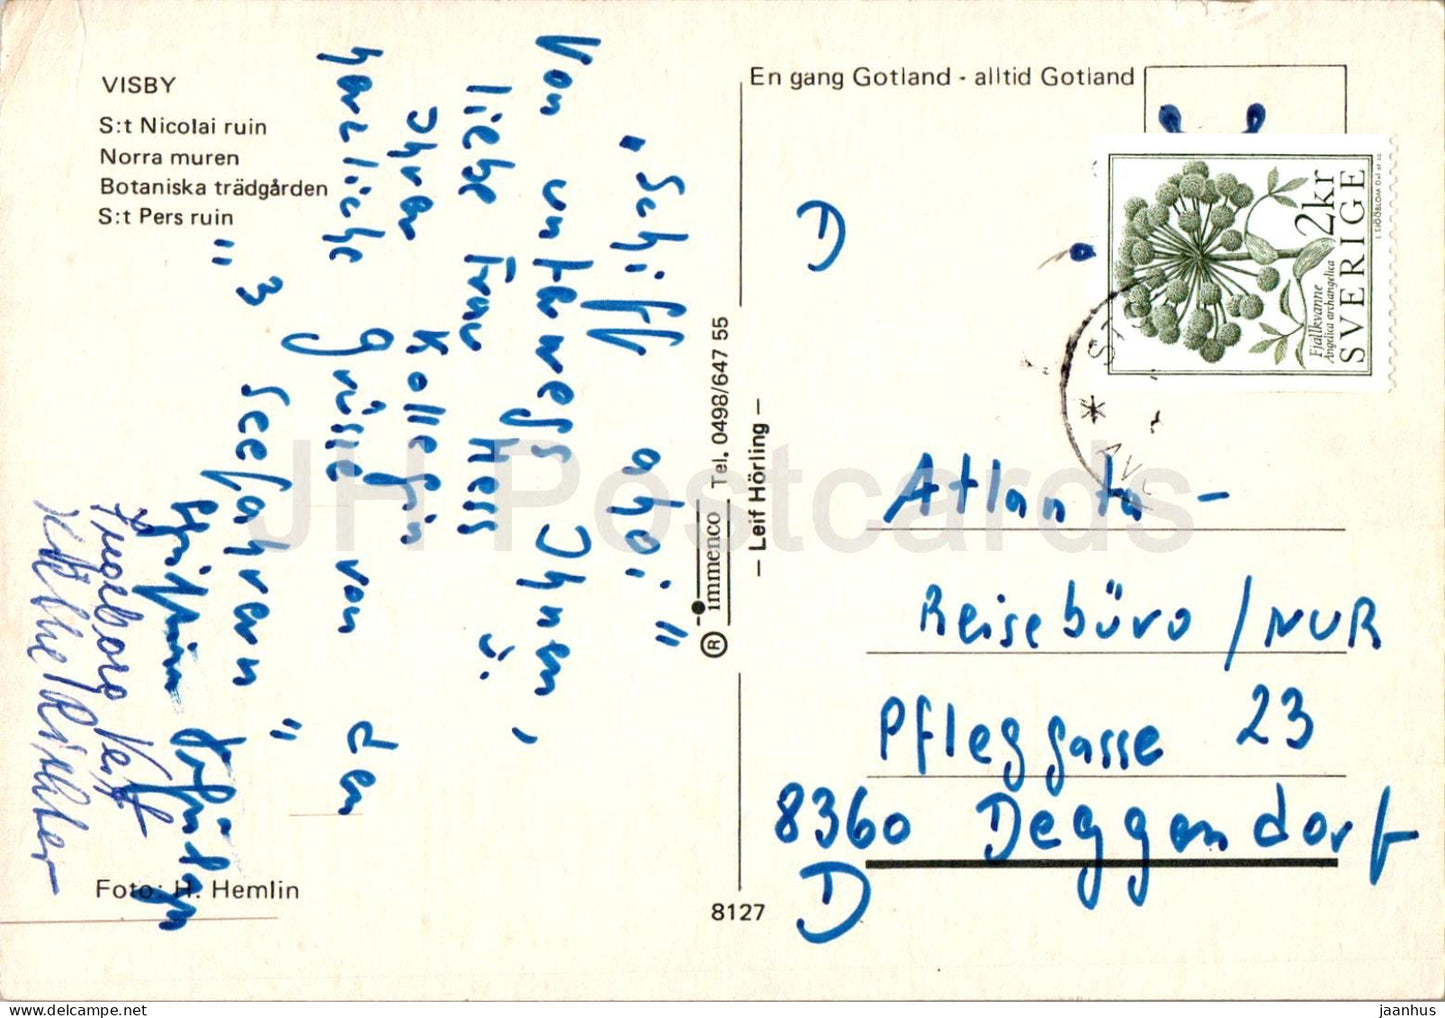 VISBY
S:t Nicolai ruin
Norra muren
Botaniska trädgården
S:t Pers ruin
"Schiff ahoi"
Von unterwegs Ihnen,
liebe Frau Hess u.
Ihrer Kollegin
herzliche Grüsse von den
"3 Seefahrern"
Ingeborg Veit
Käthe Richter
Foto: H. Hemlin
En gang Gotland - alltid Gotland
immenco Tel. 0498/647 55
– Leif Hörling –
8127
2kr
SVERIGE
Fjällkvanne
Angelica archangelica
D
Atlanta -
Reisebüro / NUR
Pfleggasse 23
8360 Deggendorf
D
JH Postcards
jaanhus